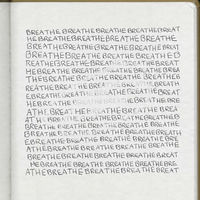 BREATHEBREATHEBREATHEBREATHEBREAT
HEBREATHEBREATHEBREATHEBREATHE
BREATHEBREATHEBREATHEBREATHEBREAT
BREATHEBREATHEBREATHEBREATHEB
REATHEBREATHEBREATHEBREATHEBREAT
HEBREATHEBREATHEBREATHEBREA
THEBREATHEBREATHEBREATHEBREATHEB
REATHEBREATHEBREATHEBREATHEBREATH
EBREATHEBREATHEBREATHEBREATHE
HEBREATHEBREATHEBREATHEBRE
ATHE BREATHEBREATHEBREATHEBREA
ATHEBREATHEBREATHEBREATHEBREA
BREATHEBREATHEBREATHEBREATHEBREAT
BREATHEBREATHEBREATHEBREATHE BREAT
EBREATHEBREATHEBREATHEBREATHE BRE
ATHEBREATHEBREATHEBREATHEBREATHE
BREATHEBREATHEBREATHEBREATHEBREAT
HEBREATHEBREATHEBREATHEBREATHE BRE
ATHEBREATHEBREATHEBREATHEBREATHE